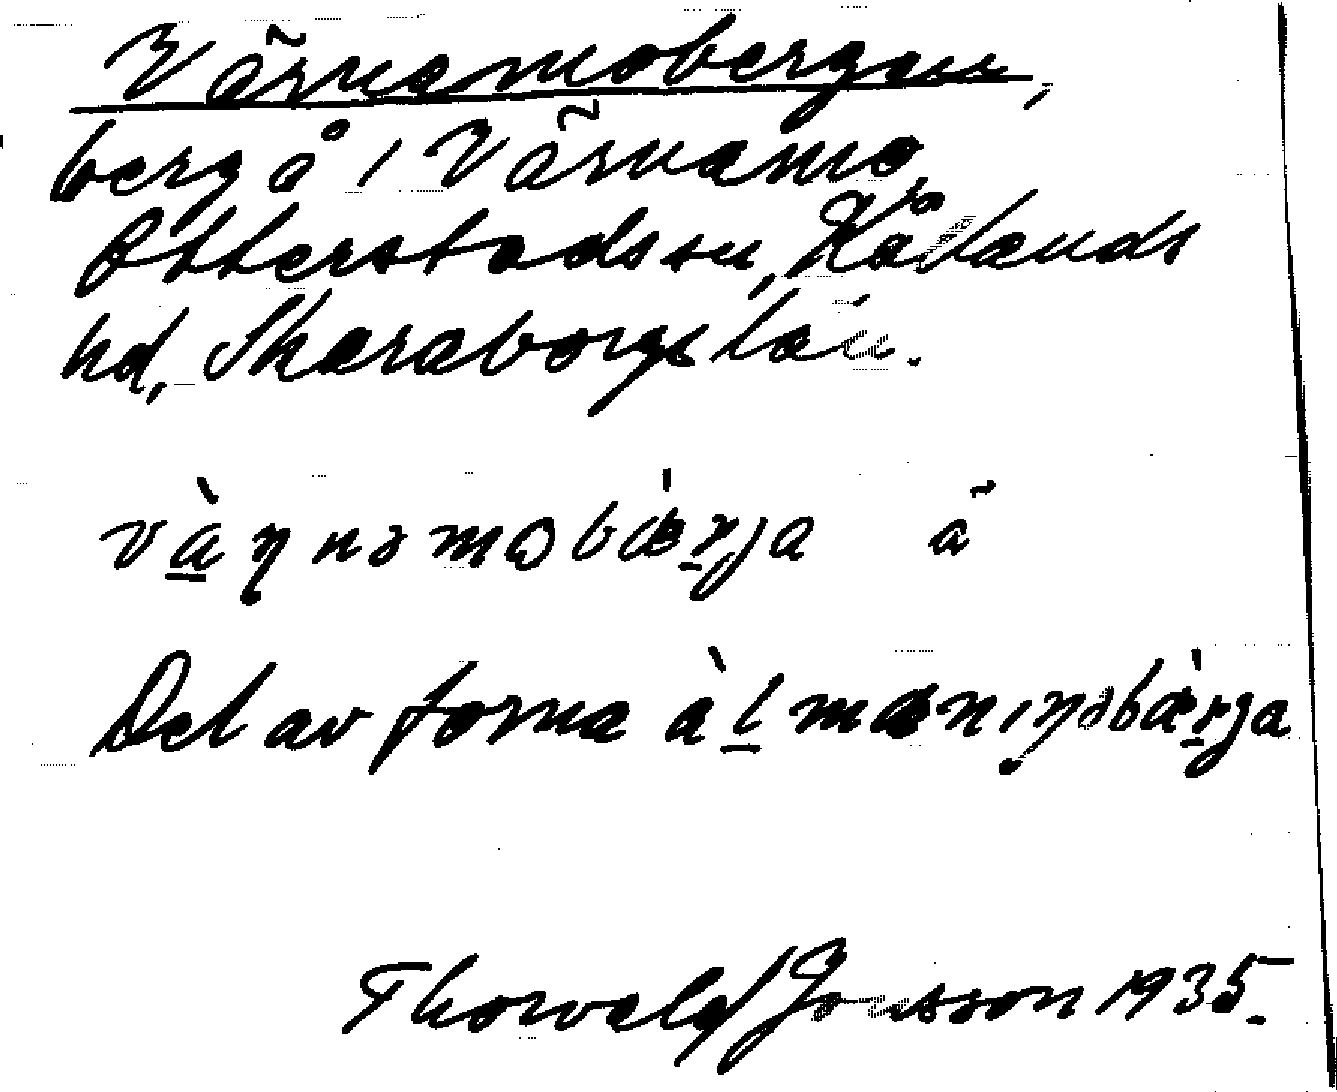 Värnamobergen,
berg å i Värnamo,
Otterstads sn, Kållands
hd, Skaraborgs län.
vàŋnəmobærja å
Del av forna àlmæniŋsbærja
Thorvald Jonsson 1935.